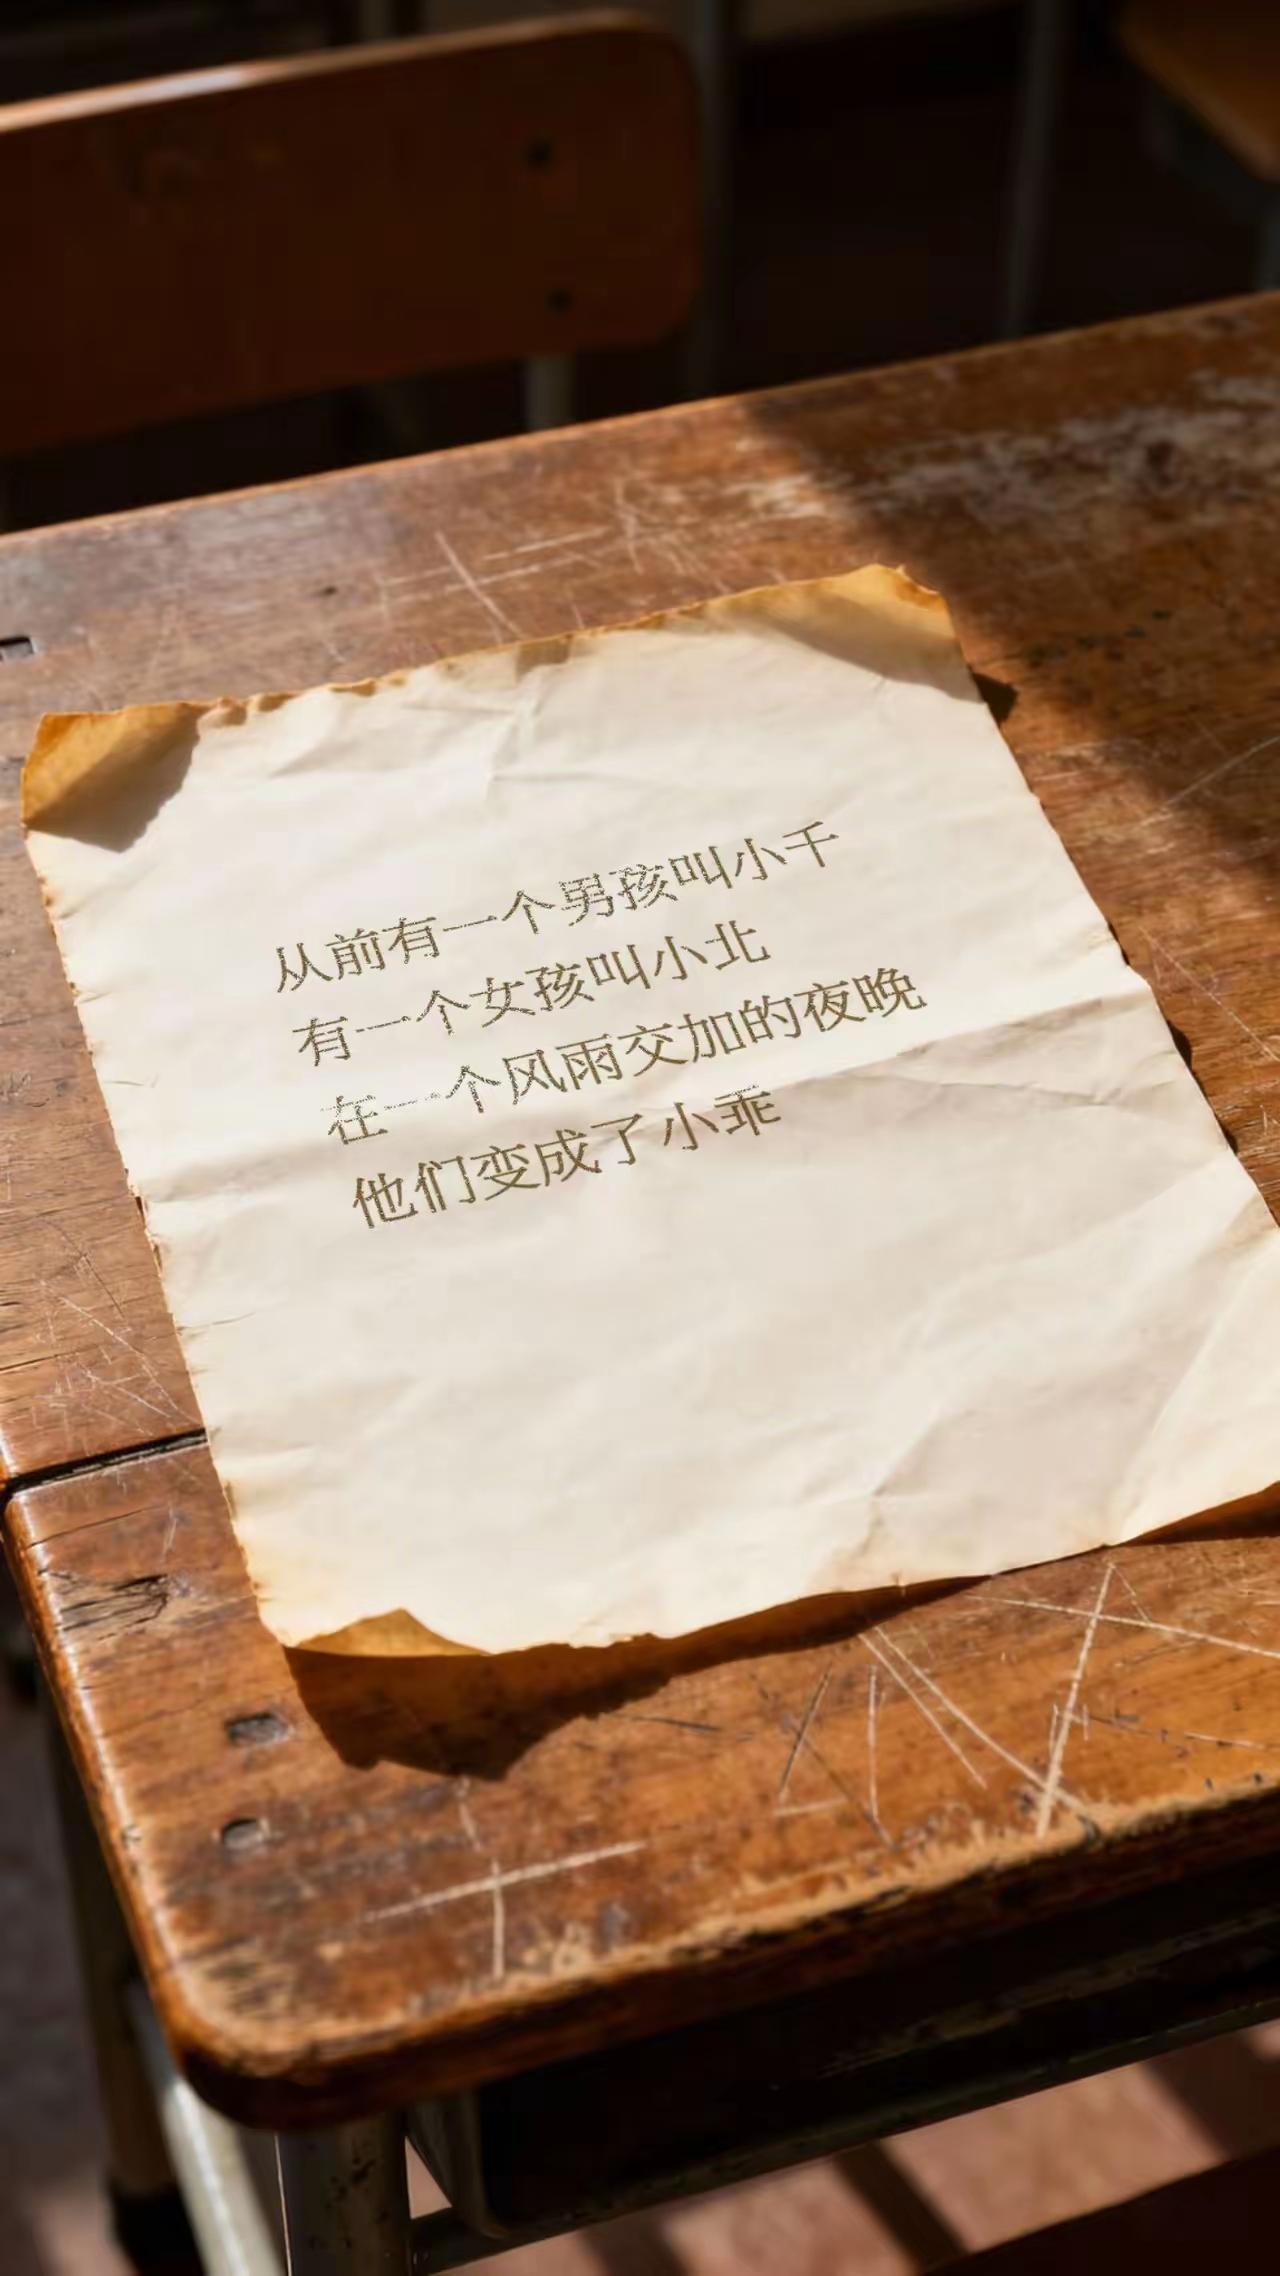 从前有一个男孩叫小千
有一个女孩叫小北
在一个风雨交加的夜晚
他们变成了小乖